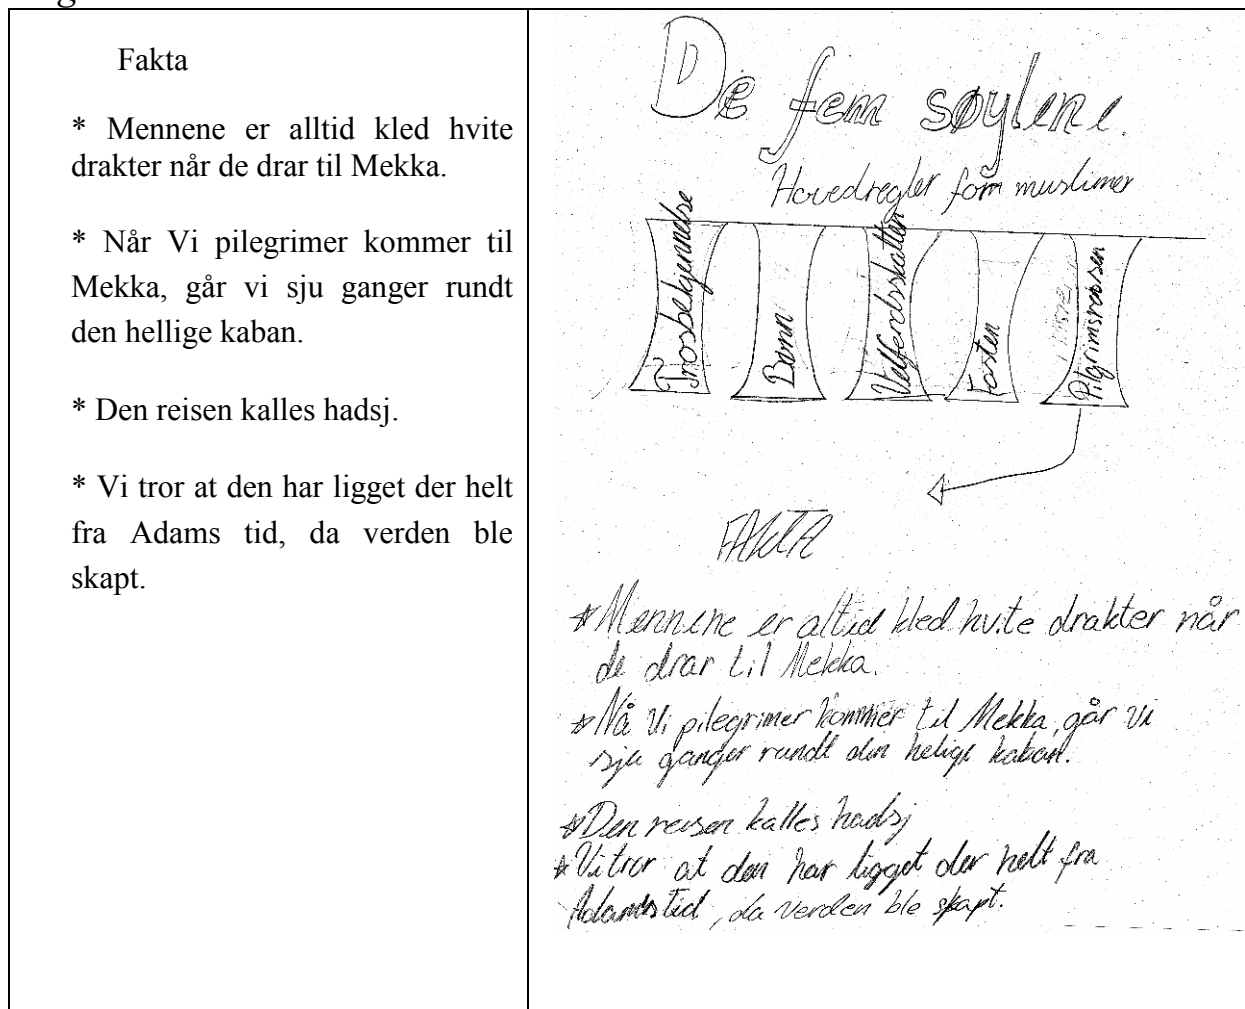 Fakta
* Mennene er alltid kled hvite
drakter når de drar til Mekka.
* Når Vi pilegrimer kommer til
Mekka, går vi sju ganger rundt
den hellige kaban.
* Den reisen kalles hadsj.
* Vi tror at den har ligget der helt
fra Adams tid, da verden ble
skapt.
De fem søylene.
Hovedregler forn muslimer
Trosbekjennelse
Bønn
Velferdsskatten
Fasten
Pilgrimsreisen
FAKTA
* Mennene er altid kled hvite drakter når
de drar til Mekka.
* Nå Vi pilegrimer kommer til Mekka, går vi
sju ganger rundt den helige kaban.
* Den reisen kalles hadsj
* Vi tror at den har ligget der helt fra
Adams tid, da verden ble skapt.